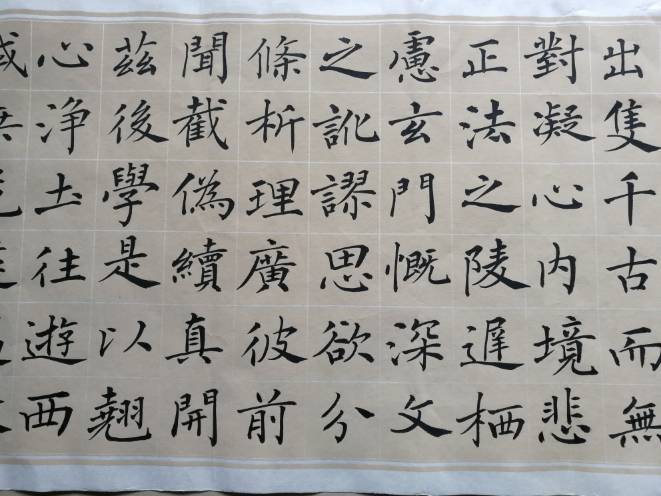 出隻千古而無
對凝心内境悲
正法之陵遲栖
慮玄門慨深文
之訛謬思欲分
條析理廣彼前
聞截偽續真開
茲後學是以翹
心浄土往遊西